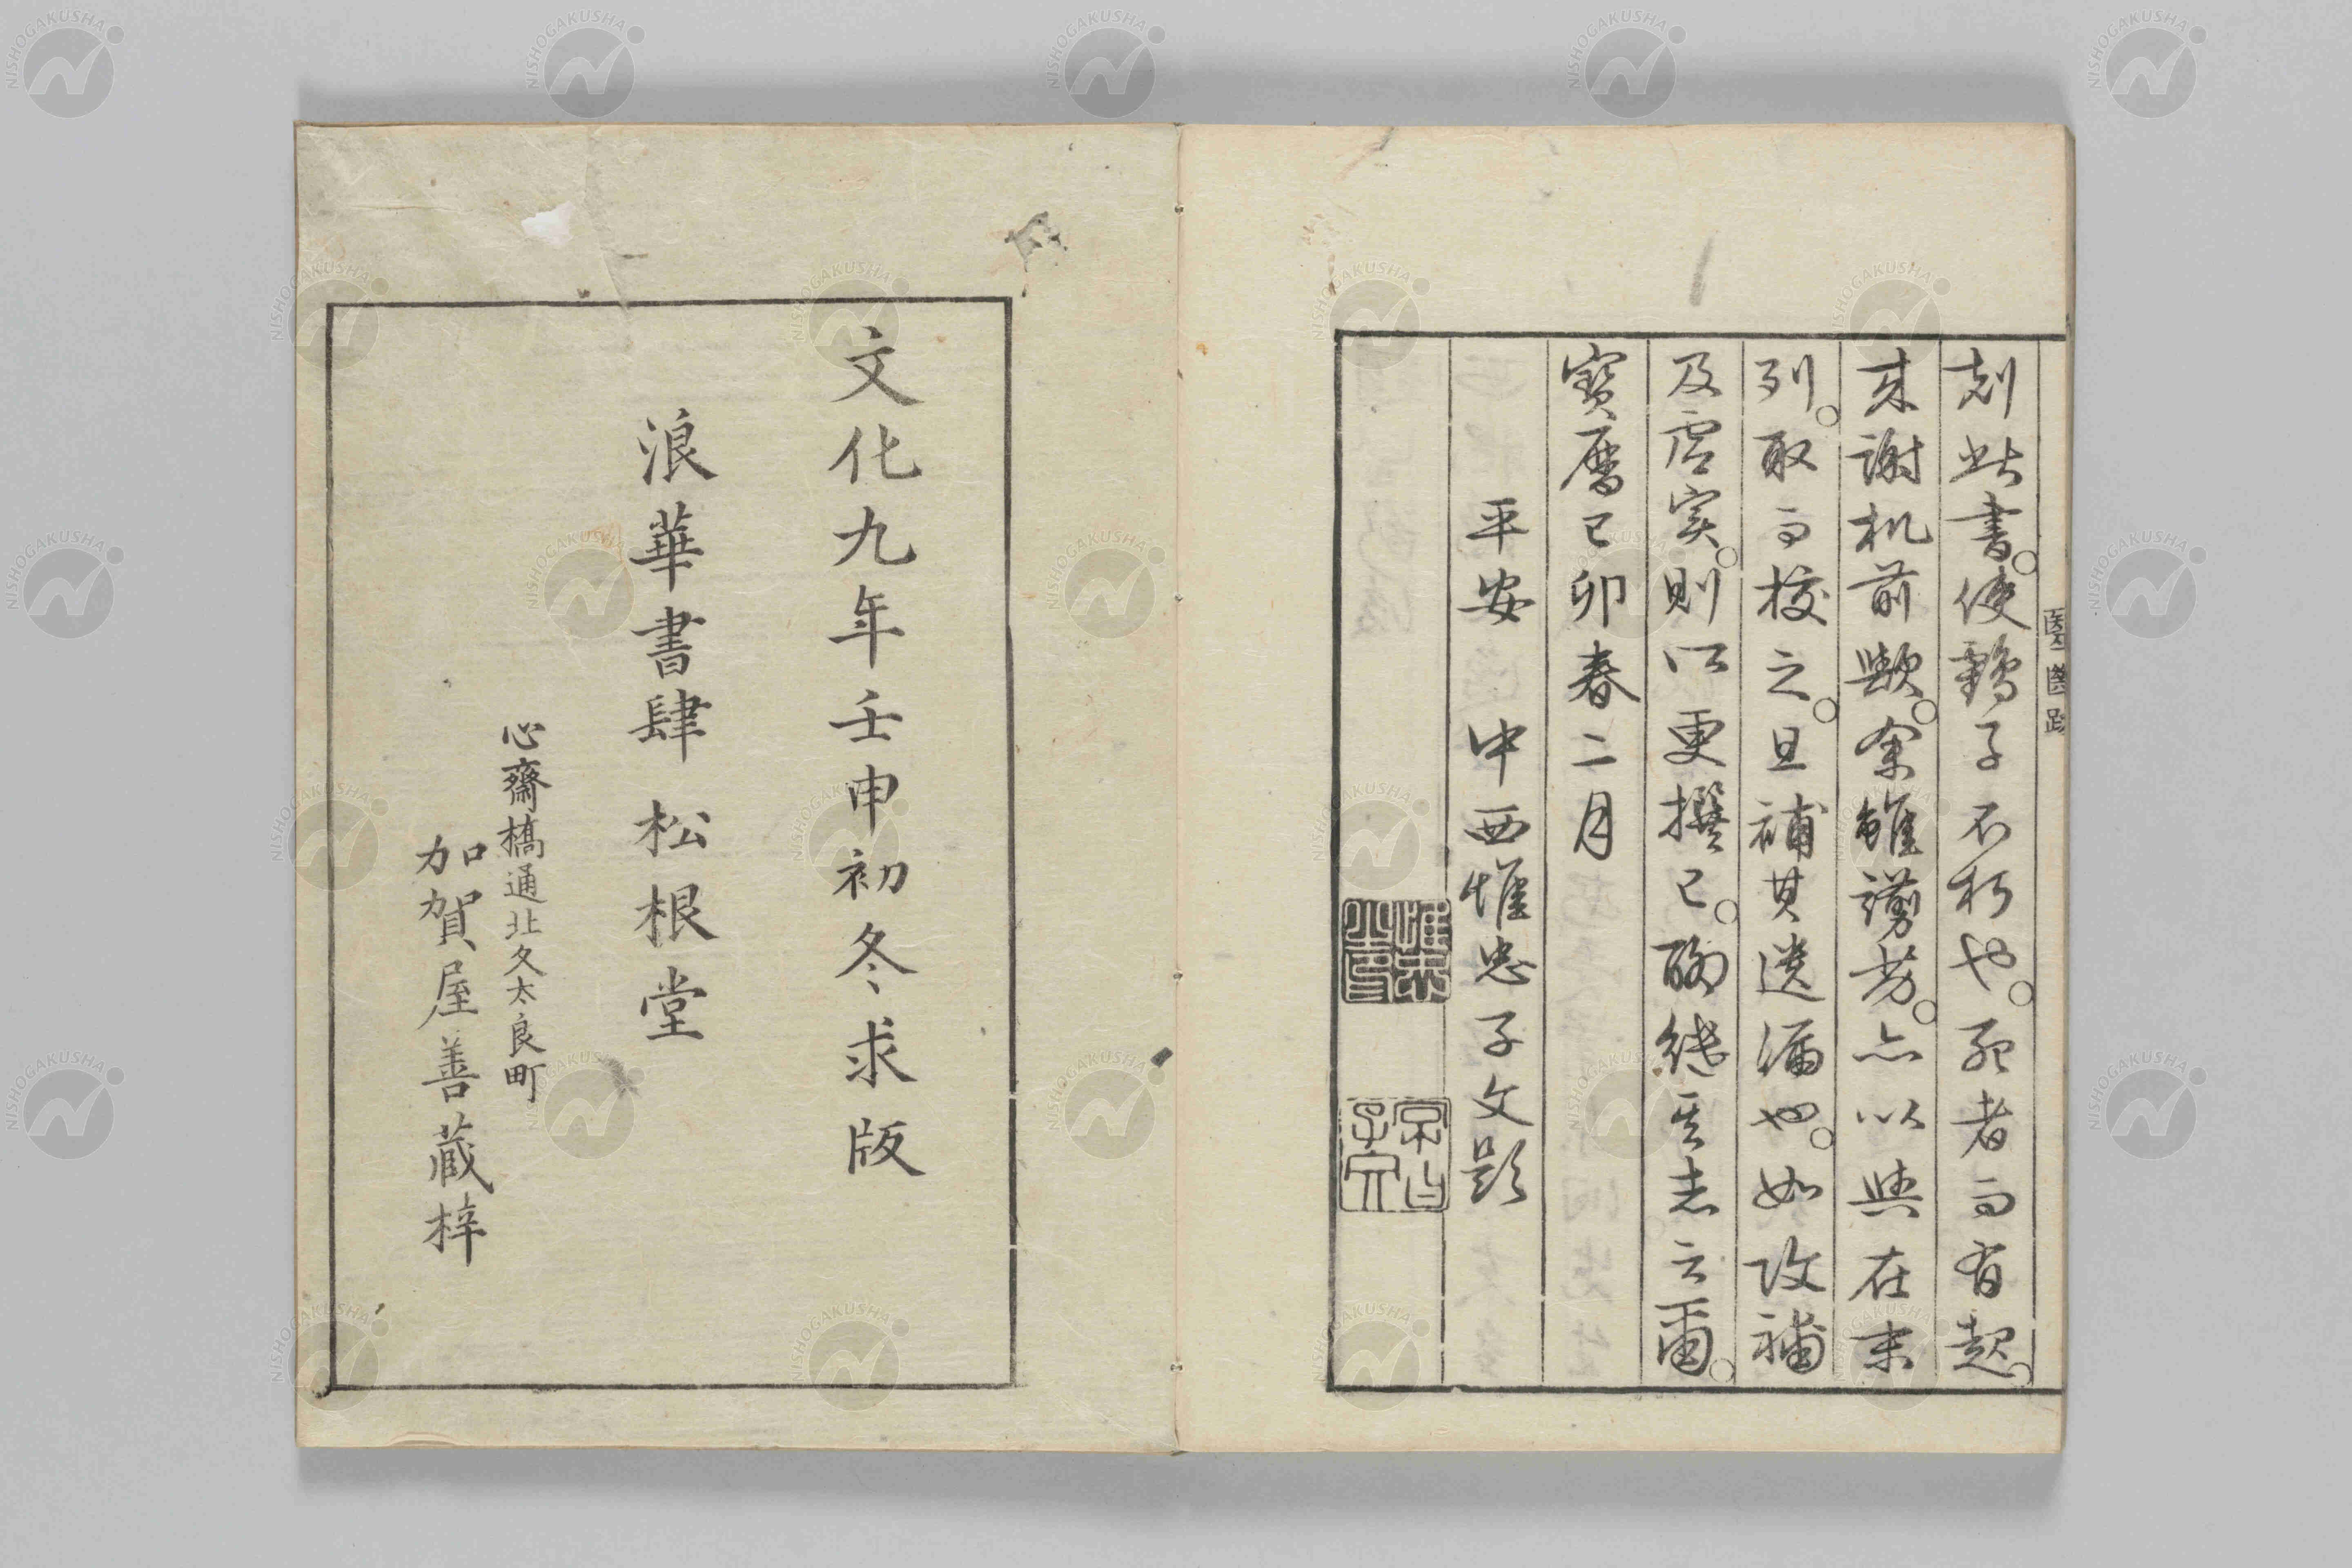 醫斷跋
刻此書。使鶴子不朽也。死者而有起。
来謝机前歟。余雖譾劣。亦以與在末
列。取而校之。且補其遺漏也。如攻補
及虚实。則以更撰已。聊継其志云爾。
寶暦己卯春二月
平安 中西惟忠子文題
文化九年壬申初冬求版
浪華書肆 松根堂
心齋橋通北久太良町
加賀屋善藏梓